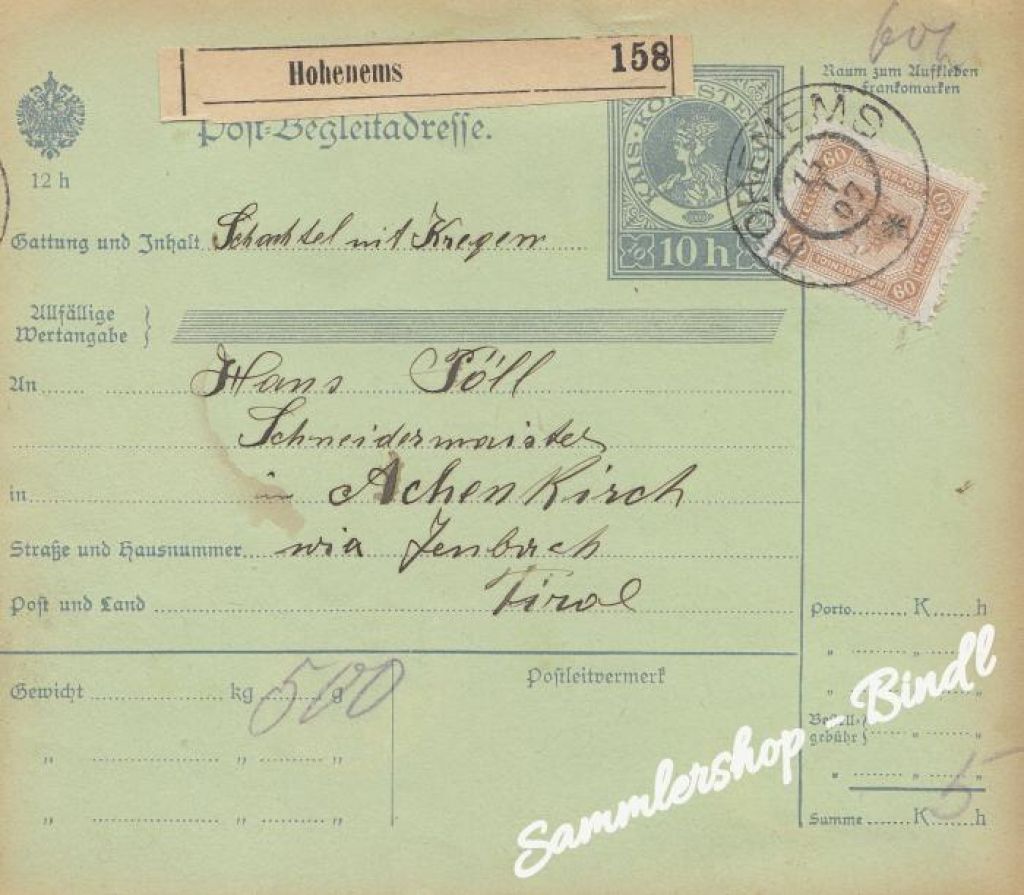 60h
Hohenems 158
Raum zum Aufkleben
der Frankomarken
Post-Begleitadresse.
KAIS. KÖNIGL. ÖSTERR.
HOHENEMS
07
60
60
60
60
12 h
Gattung und Inhalt Schachtel mit Kregen
10 h
Allfällige
Wertangabe
An Hans Pöll
Schneidermaister
in in Achenkirch
Straße und Hausnummer wia Jenbach
Post und Land Tirol
Porto K h
" " "
Gewicht kg 500 g
Postleitvermerk
" "
Bestell-
gebühr " "
" " "
" " "
5
" " "
Summe K h
Sammlershop - Bindl